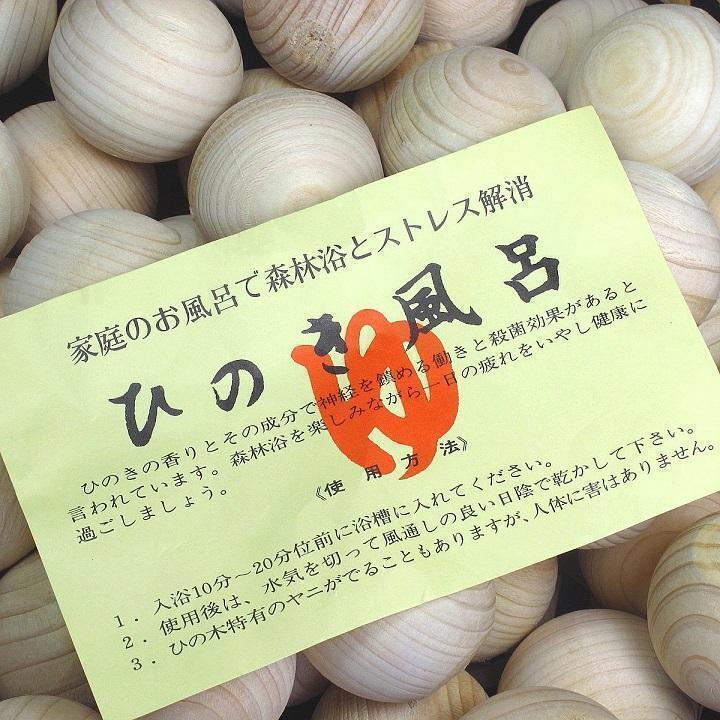 家庭のお風呂で森林浴とストレス解消
ひのき風呂
ゆ
ひのきの香りとその成分で神経を鎮める働きと殺菌効果があると
言われています。森林浴を楽しみながら一日の疲れをいやし健康に
過ごしましょう。
《使用方法》
1. 入浴10分～20分位前に浴槽に入れてください。
2. 使用後は、水気を切って風通しの良い日陰で乾かして下さい。
3. ひの木特有のヤニがでることもありますが、人体に害はありません。